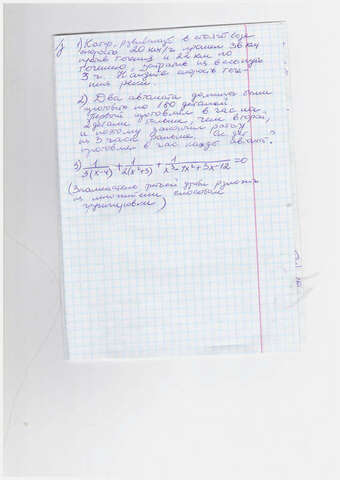 1) Катер, развивающ в стоячей воде
скорость 20 км/ч, прошел 36 км
против течения и 22 км по
течению, затратив на весь путь
3 ч. Найдите скорость тече
ния реки.
2) Два автомата должны были
изготовить по 180 деталей.
Первый изготовлял в час на
2 детали больше, чем второй,
и поэтому закончил работу
на 3 часа раньше. Ск. дет.
изготовлял в час каждый автомат.
3) 1/3(x-4) + 1/2(x²+3) + 1/x³-4x²+3x-12 = 0
(Знаменатель третьей дроби разложить
на множители способом
группировки)